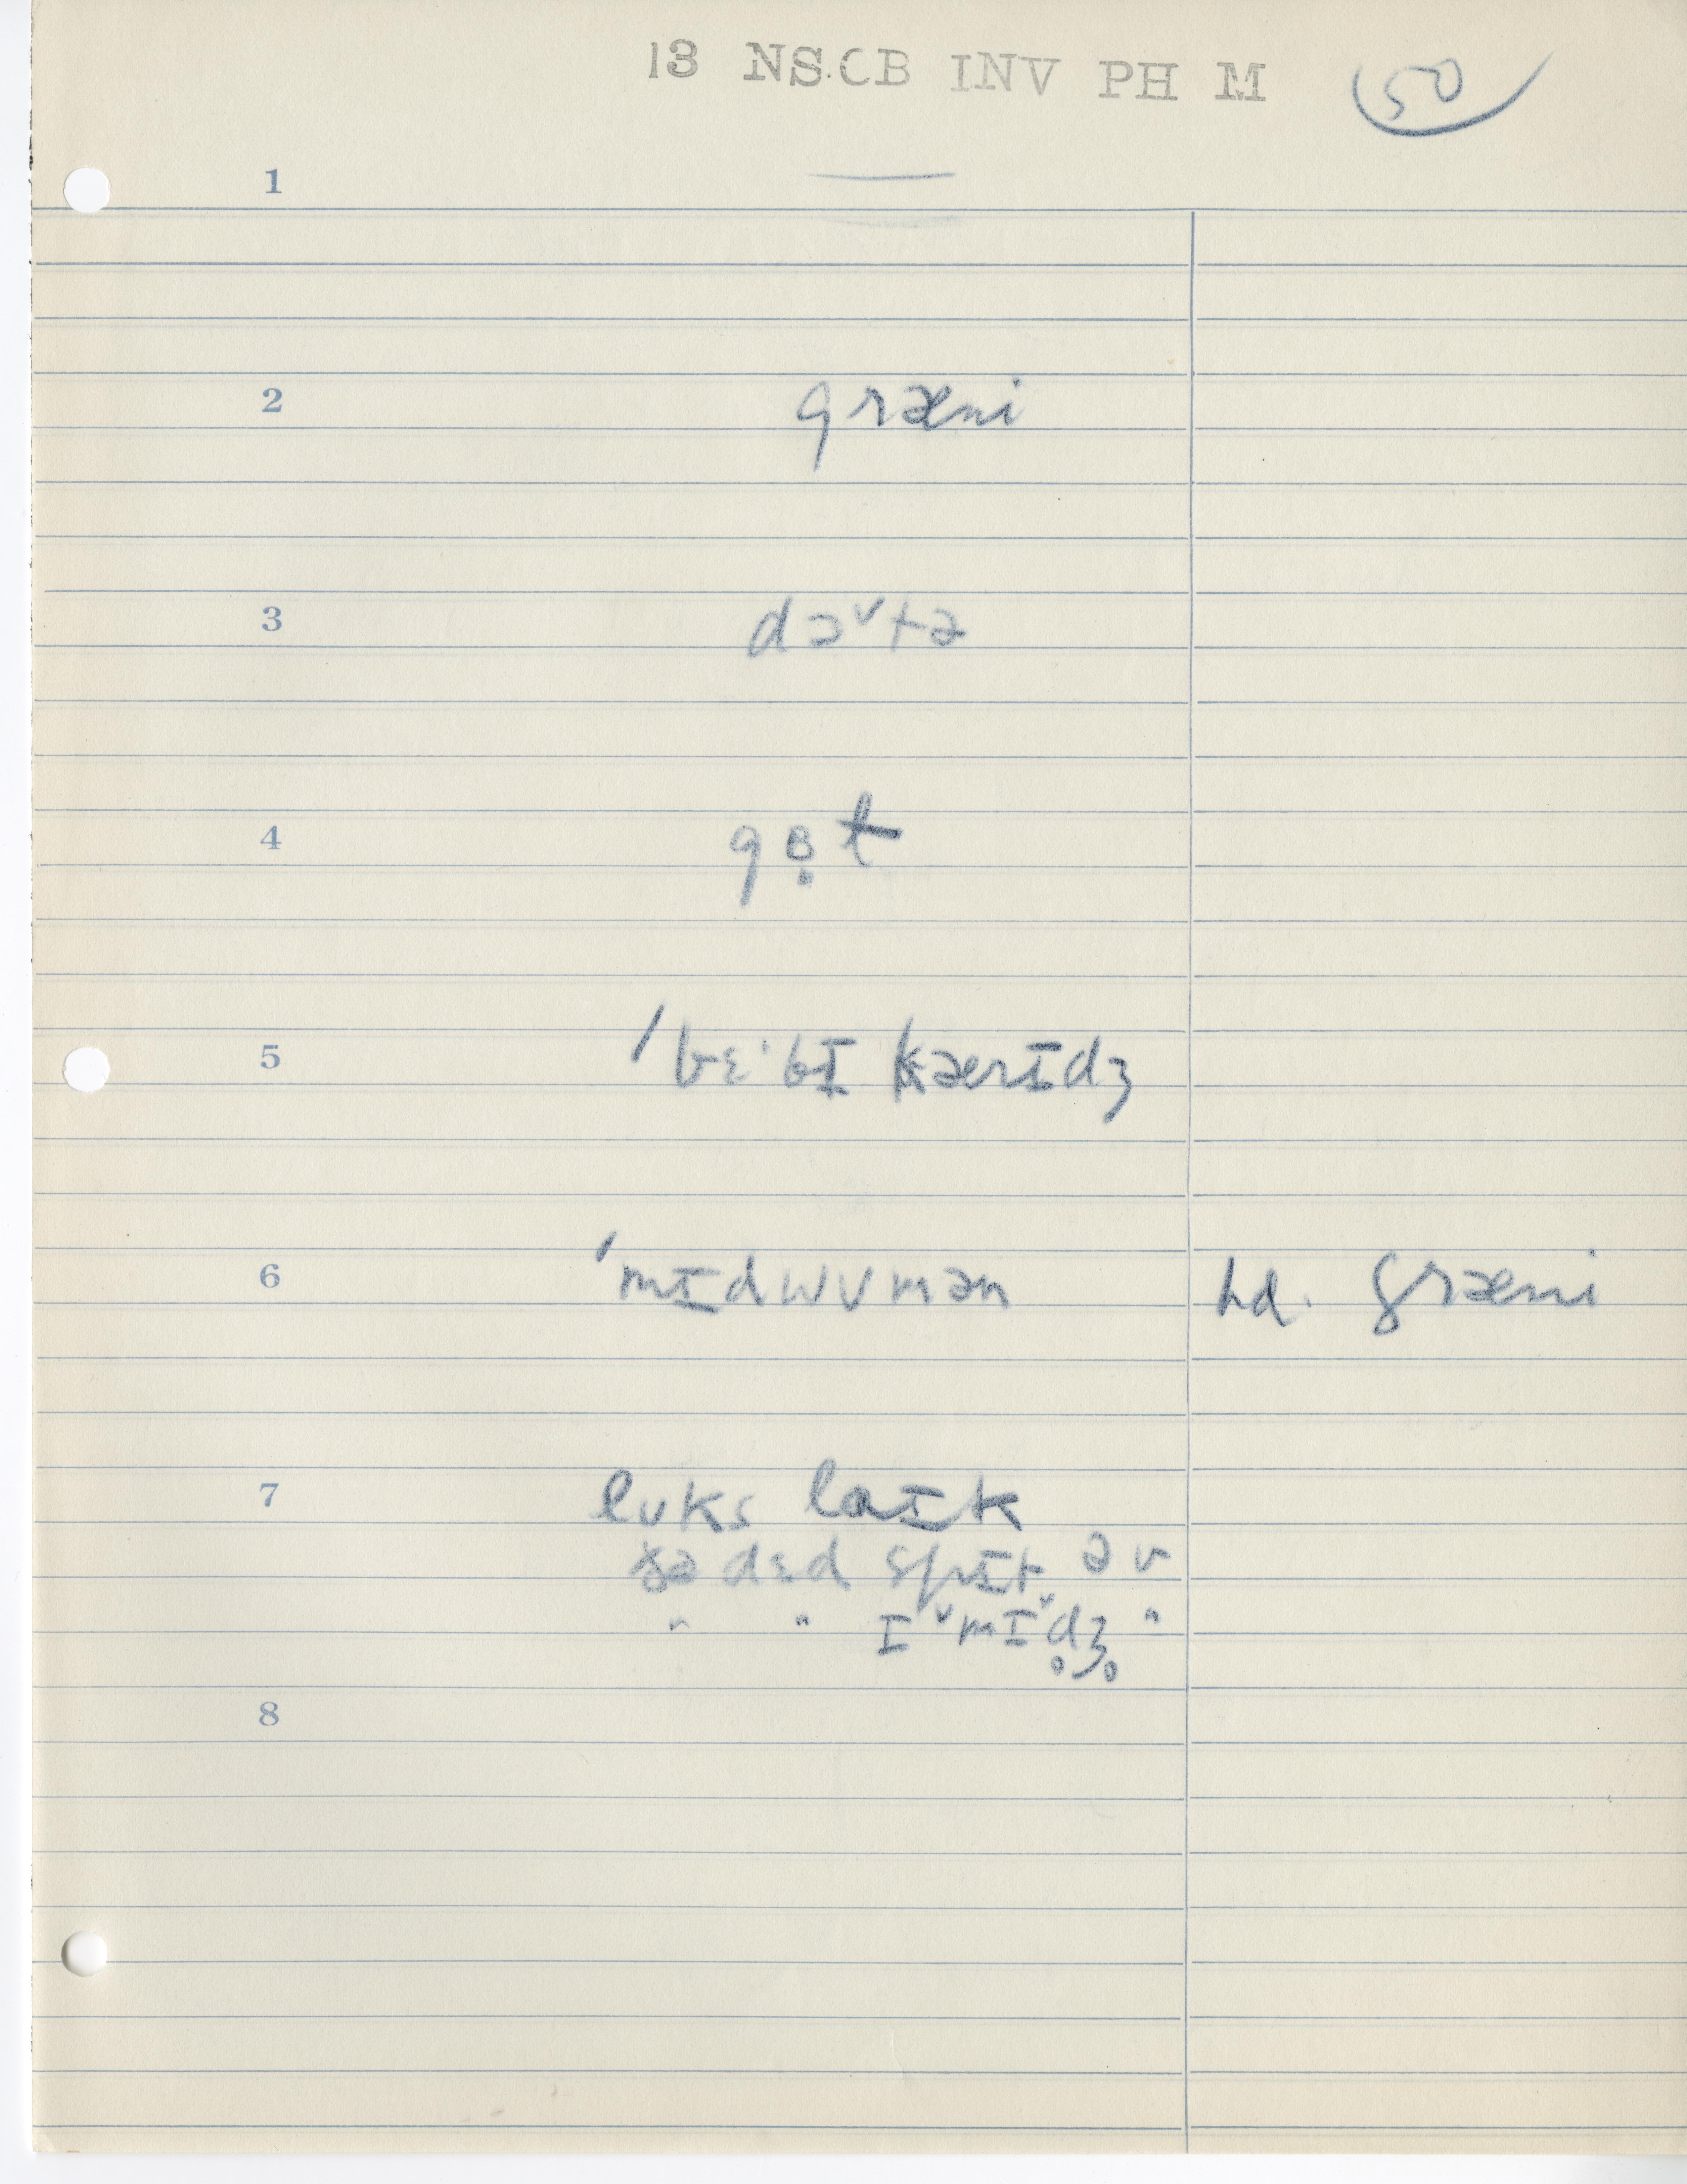 13 NS.CB INV PH M 50
1 —
2 græni
3 dɔ˅tə
4 gɒ̣t
5 ˈbɛ·bɪ kærɪdʒ
6 ˈmɪdwʊmən hd. græni
7 lʊks laɪk
ðə dɛd spɪt əv
" " ɪ˅mɪ˅d̥ʒ̥ "
8